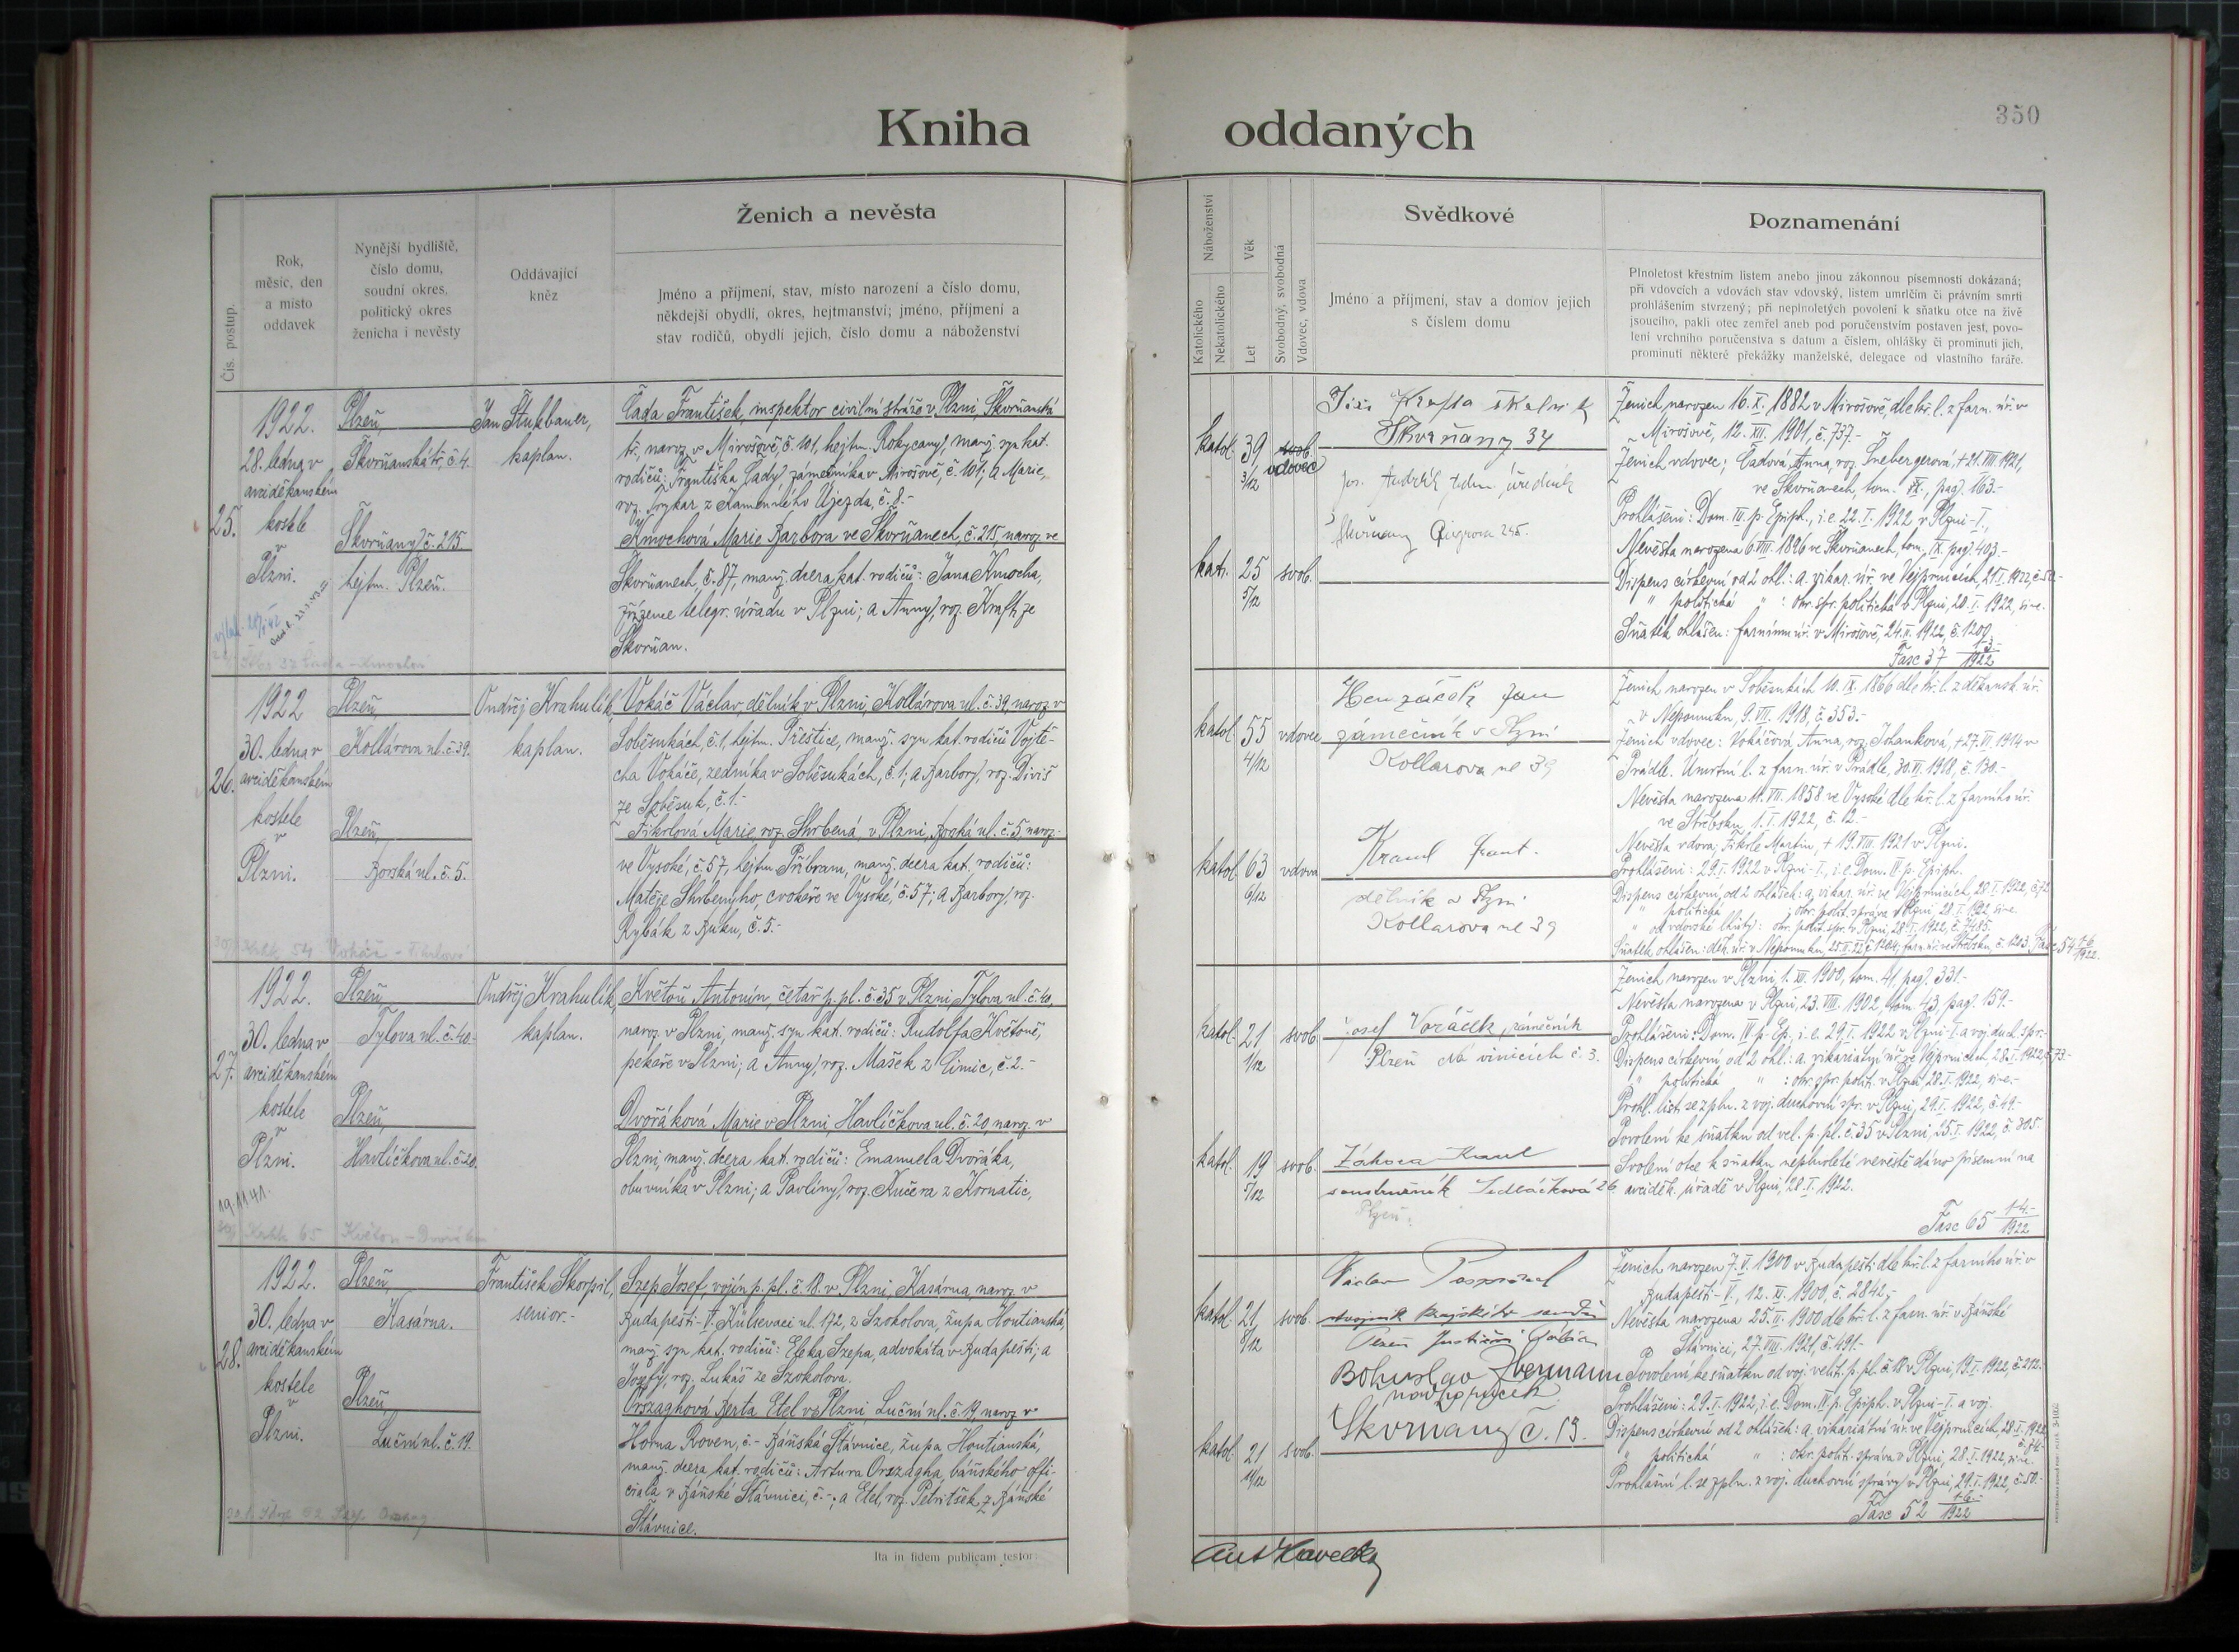 Kniha oddaných
350
Čís. postup.
Rok,
měsíc, den
a místo
oddavek
Nynější bydliště,
číslo domu,
soudní okres,
politický okres
ženicha i nevěsty
Oddávající
kněz
Ženich a nevěsta
Jméno a příjmení, stav, místo narození a číslo domu,
někdejší obydlí, okres, hejtmanství; jméno, příjmení a
stav rodičů, obydlí jejich, číslo domu a náboženství
Náboženství
Katolického
Nekatolického
Věk
Let
Svobodný, svobodná
Vdovec, vdova
Svědkové
Jméno a příjmení, stav a domov jejich
s číslem domu
Poznamenání
Plnoletost křestním listem anebo jinou zákonnou písemností dokázaná;
při vdovcích a vdovách stav vdovský, listem umrlčím či právním smrti
prohlášením stvrzený; při neplnoletých povolení k sňatku otce na živě
jsoucího, pakli otec zemřel aneb pod poručenstvím postaven jest, povo-
lení vrchního poručenstva s datum a číslem, ohlášky či prominutí jich,
prominutí některé překážky manželské, delegace od vlastního faráře.
25.
1922.
28. ledna v
arciděkanském
kostele
v
Plzni.
Plzeň,
Škvrňanská tř. č. 4.
Škvrňany č. 215
hejtm. Plzeň.
Jan Štukbauer,
kaplan.
Čada František, inspektor civilní stráže v Plzni, Škvrňanská
tř., naroz. v Mirošově, č. 101, hejtm. Rokycany, manž. syn kat.
rodičů: Františka Čady, zámečníka v Mirošově, č. 101, a Marie,
roz. z Kamenného Újezda, č. 8.-
Kmochová Marie Barbora ve Škvrňanech, č. 215, naroz. ve
Škvrňanech, č. 87, manž. dcera kat. rodičů: Jana Kmocha,
zřízence telegr. úřadu v Plzni; a Anny, roz. Kraft, ze
Škvrňan.
katol. 39 3/12 svob. vdovec
kat. 25 5/12 svob.
Škvrňany 34
Škvrňany 245.
Ženich narozen 16. X. 1882 v Mirošově, dle kř. l. z farn. úř. v
Mirošově, 12. XII. 1901, č. 737.-
Ženich vdovec; Čadová Anna, roz. Šnebergerová, + 21. VIII. 1921,
ve Škvrňanech, tom. IX., pag. 163.-
Prohlášeni: Dom. III. p. Epiph., i. e. 22. I. 1922 v Plzni-I.,
Nevěsta narozena 6. VIII. 1896 ve Škvrňanech, tom. IX. pag. 403.-
Dispens církevní od 2 ohl.: a. vikar. úř. ve Vejprnicích, 21. I. 1922,
" politická " : okr. spr. politická v Plzni, 20. I. 1922,
Sňatek ohlášen: farnímu úř. v Mirošově, 24. II. 1922, č. 1200
Fasc 37 13/1922
26.
1922
30. ledna v
arciděkanském
kostele
v
Plzni.
Plzeň,
Kollárova ul. č. 39.
Plzeň,
Borská ul. č. 5.
Ondřej Krahulík,
kaplan.
Vokáč Václav, dělník v Plzni, Kollárova ul. č. 39, naroz. v
Soběsukách, č. 1, hejtm. Přeštice, manž. syn kat. rodičů Vojtě-
cha Vokáče, zedníka v Soběsukách, č. 1; a Barbory, roz. Diviš
ze Soběsuk, č. 1.-
Fikrlová Marie roz. Skrbená, v Plzni, Borská ul. č. 5 naroz.
ve Vysoké, č. 57, hejtm. Příbram, manž. dcera kat. rodičů:
Matěje Skrbenyho, cvokaře ve Vysoké, č. 57; a Barbory, roz.
Rybák z Buku, č. 5.-
katol. 55 4/12 vdovec
katol. 63 6/12 vdova
Jan
zámečník v Plzni
Kollarova ul 39
Kraml Frant.
dělník v Plzni
Kollarova ul 39
Ženich narozen v Soběsukách 10. IX. 1866 dle kř. l. z děkansk. úř.
v Nepomuku, 9. VII. 1918, č. 353.-
Ženich vdovec: Vokáčová Anna, roz. Johanková, + 27. VI. 1914 v
Prádle. Úmrtní l. z farn. úř. v Prádle, 30. VI. 1918, č. 130.-
Nevěsta narozena 11. VII. 1858 ve Vysoké dle kř. l. z farního úř.
ve Střebsku, 1. I. 1922, č. 12.-
Nevěsta vdova; Fikrle Martin, + 19. VIII. 1921 v Plzni.
Prohlášeni: 29. I. 1922 v Plzni-I., i. e. Dom. IV. p. Epiph.
Dispens církevní od 2 ohlášek: a. vikar. úř. ve Vejprnicích, 28. I. 1922, č. 72
" politická " : okr. polit. správa v Plzni, 28. I. 1922,
" od vdovské lhůty: okr. polit. spr. v Plzni, 28. I. 1922, č. 7485.
Fasc 54 16/1922.
27.
1922.
30. ledna v
arciděkanském
kostele
v
Plzni.
19.11.41.
Plzeň,
Tylova ul. č. 40.-
Plzeň,
Havlíčkova ul. č. 20.
Ondřej Krahulík,
kaplan.
Květoň Antonín, četař p. pl. č. 35 v Plzni, Tylova ul. č. 40,
naroz. v Plzni, manž. syn kat. rodičů: Rudolfa Květoně,
pekaře v Plzni; a Anny, roz. Mašek z Čimic, č. 2.-
Dvořáková Marie v Plzni, Havlíčkova ul. č. 20, naroz. v
Plzni, manž. dcera kat. rodičů: Emanuela Dvořáka,
obuvníka v Plzni; a Pavlíny, roz. Kučera z Kornatic,
katol. 21 1/12 svob.
katol. 19 5/12 svob.
Josef Voráček, zámečník
Plzeň Na vinicích č. 3.
Karel
soustružník Sedláčková 26
Plzeň.
Ženich narozen v Plzni, 1. XII. 1900, tom. 41, pag. 331.-
Nevěsta narozena v Plzni, 23. VIII. 1902, tom. 43, pag. 159.-
Prohlášeni: Dom. IV. p. Ep., i. e. 29. I. 1922 v Plzni-I. a voj. duch. spr.-
Dispens církevní od 2 ohl.: a. vikariátní úř. ve Vejprnicích, 28. I. 1922, č. 73.-
" politická " : okr. spr. polit. v Plzni, 28. I. 1922,
Prohl. list. se zpln. z voj. duchovní spr. v Plzni, 29. I. 1922, č. 49.-
Povolení ke sňatku od vel. p. pl. č. 35 v Plzni, 25. I. 1922, č. 805.-
Svolení otce k sňatku neplnoleté nevěstě dáno písemní na
arciděk. úřadě v Plzni, 28. I. 1922.
Fasc 65 14.-/1922
28.
1922.
30. ledna v
arciděkanském
kostele
v
Plzni.
Plzeň,
Kasárna.
Plzeň,
Luční ul. č. 19.
František Škorpil,
senior.-
Szep Josef, vojín p. pl. č. 18. v Plzni, Kasárna, naroz. v
Budapešti-V. Külsevaci ul. 172, z Szokolova, župa Hontianská,
manž. syn kat. rodičů: Eleka Szepa, advokáta v Budapešti; a
Josefy, roz. Lukáš ze Szokolova.
Orszaghová Berta Etel v Plzni, Luční ul. č. 19, naroz. v
Horna Roven, č.- Báňská Štávnice, župa Hontianská,
manž. dcera kat. rodičů: Artura Orszagha, báňského offi-
ciala v Báňské Štávnici, č.-; a Etel, roz. Petritšek z Báňské
Štávnice.
katol. 21 8/12 svob.
katol. 21 11/12 svob.
Václav Pospíšil
strojník krajského soudu
Bohuslav Hermann
nadporučík
Škvrňany č. 19.
Ženich narozen 7. V. 1900 v Budapešti dle kř. l. z farního úř. v
Budapešti-V., 12. XI. 1900, č. 2842,-
Nevěsta narozena 25. II. 1900 dle kř. l. z farn. úř. v Báňské
Štávnici, 27. VIII. 1921, č. 491.-
Povolení ke sňatku od voj. velit. p. pl. č. 18 v Plzni, 19. I. 1922, č. 212.-
Prohlášeni: 29. I. 1922, i. e. Dom. IV. p. Epiph. v Plzni-I. a voj.
Dispens církevní od 2 ohlášek: a. vikariátní úř. ve Vejprnicích, 28. I. 1922
č. 74.-
" politická " : okr. polit. správa v Plzni, 28. I. 1922,
Prohlašní l. se zpln. z voj. duchovní správy v Plzni, 29. I. 1922, č. 50.-
Fasc 52 16.-/1922
Ita in fidem publicam testor:
Ant Havelka